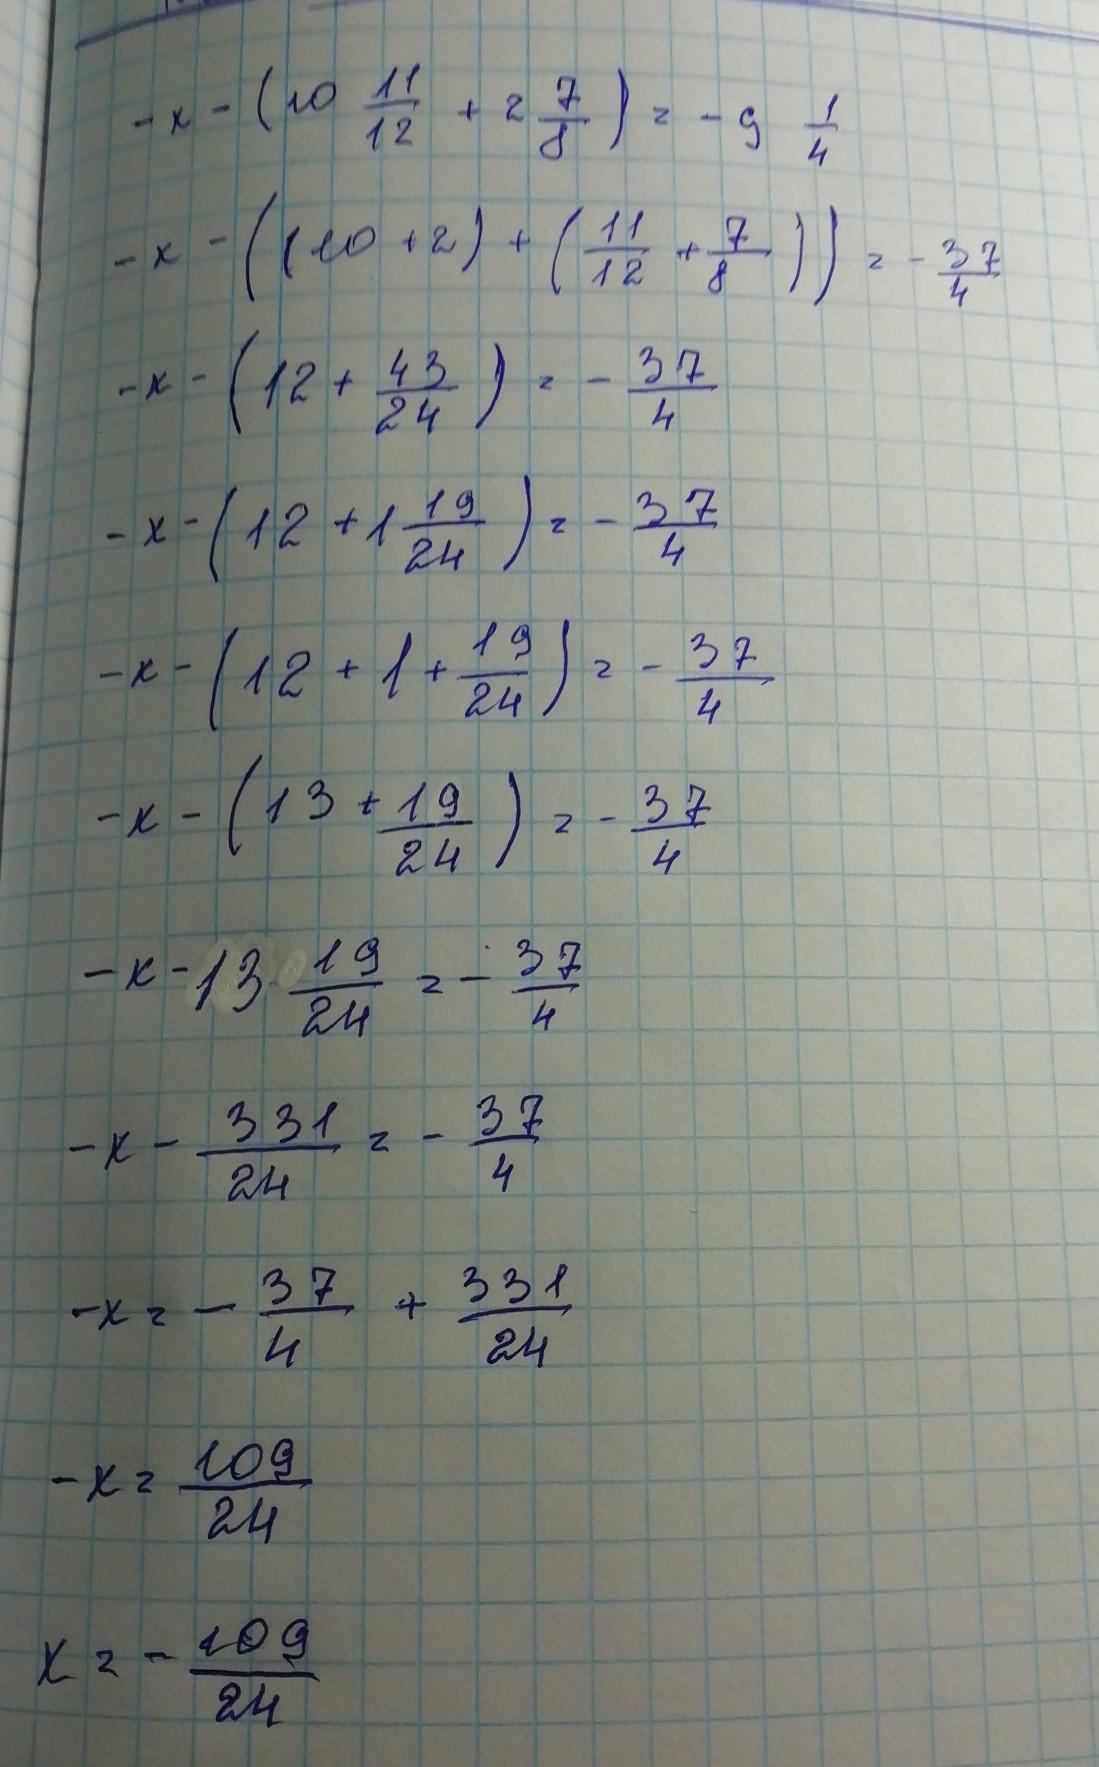 -x - (10 11/12 + 2 7/8) = - 9 1/4
-x - ((10 + 2) + (11/12 + 7/8)) = - 37/4
-x - (12 + 43/24) = - 37/4
-x - (12 + 1 19/24) = - 37/4
-x - (12 + 1 + 19/24) = - 37/4
-x - (13 + 19/24) = - 37/4
-x - 13 19/24 = - 37/4
-x - 331/24 = - 37/4
-x = - 37/4 + 331/24
-x = 109/24
x = - 109/24